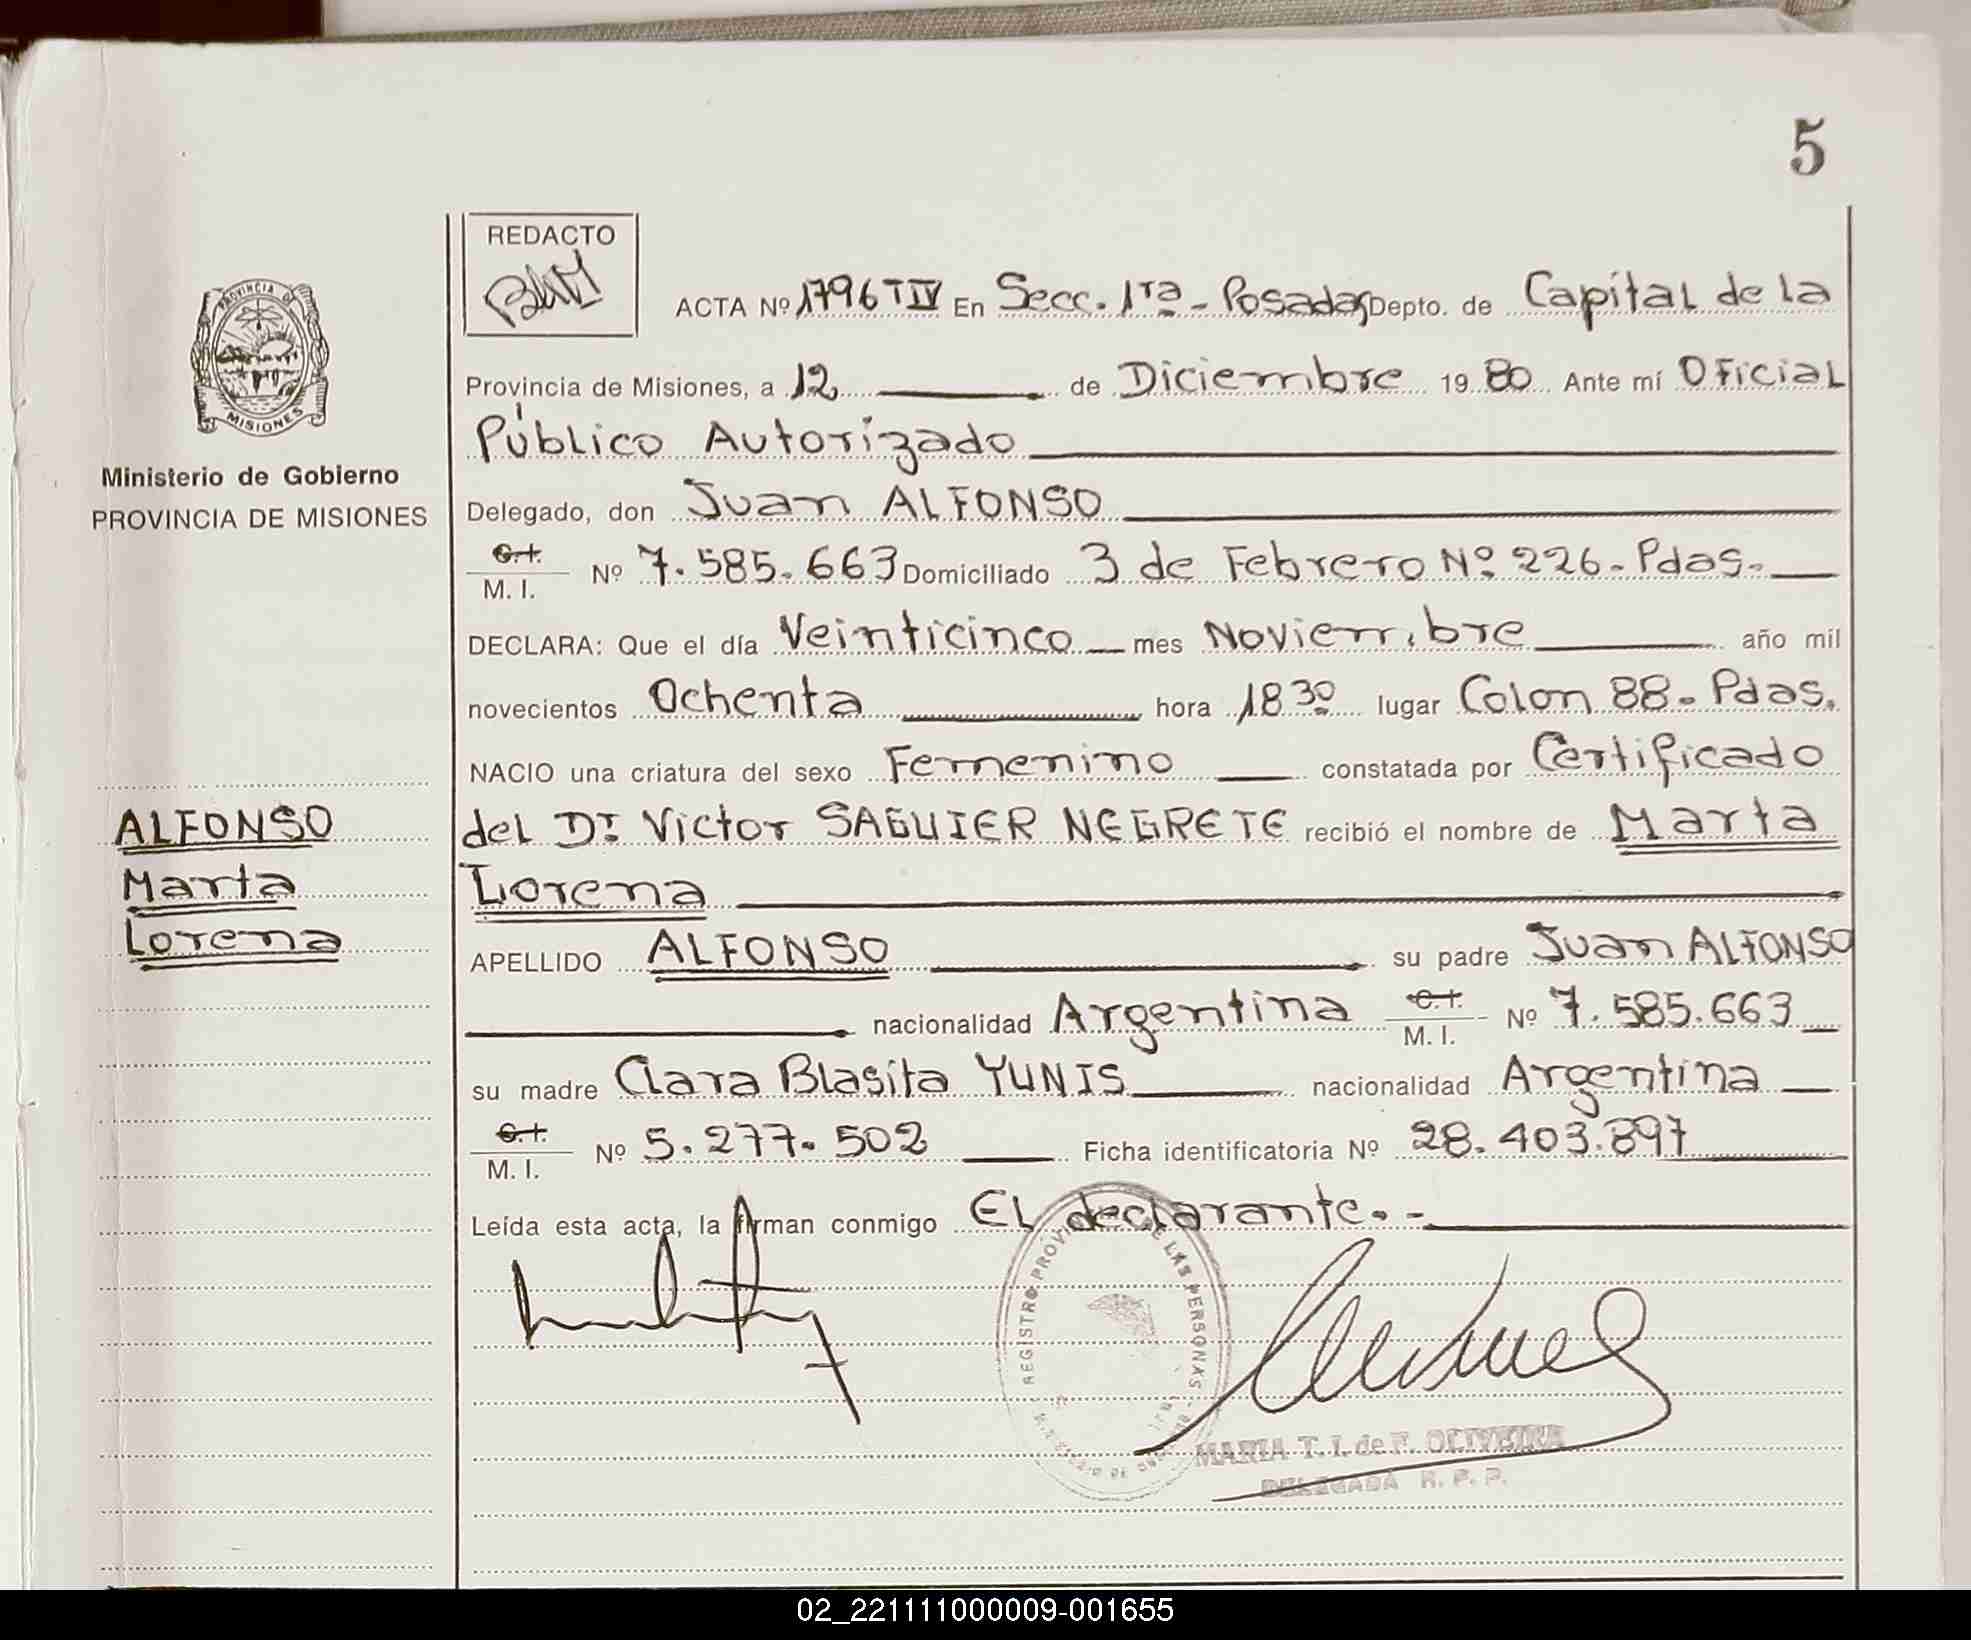 5
REDACTO
ACTA Nº 1796 T IV En Secc. 1ra - Posadas Depto. de Capital de la
Provincia de Misiones, a 12 de Diciembre 1980 Ante mí Oficial
Público Autorizado
Delegado, don Juan ALFONSO
C.I. M. I. Nº 7.585.663 Domiciliado 3 de Febrero Nº 226 - Pdas.
DECLARA: Que el día Veinticinco mes Noviembre año mil
novecientos Ochenta hora 18 30 lugar Colon 88 - Pdas.
NACIO una criatura del sexo Femenino constatada por Certificado
del Dr Victor SAGUIER NEGRETE recibió el nombre de Marta
Lorena
APELLIDO ALFONSO su padre Juan ALFONSO
nacionalidad Argentina C.I. M. I. Nº 7.585.663
su madre Clara Blasita YUNIS nacionalidad Argentina
C.I. M. I. Nº 5.277.502 Ficha identificatoria Nº 28.403.897
Leída esta acta, la firman conmigo El declarante. -
PROVINCIA DE
MISIONES
Ministerio de Gobierno
PROVINCIA DE MISIONES
ALFONSO
Marta
Lorena
REGISTRO PROVINCIAL DE LAS PERSONAS
MARIA T. I. de F. OLIVEIRA
DELEGADA R. P. P.
02_221111000009-001655